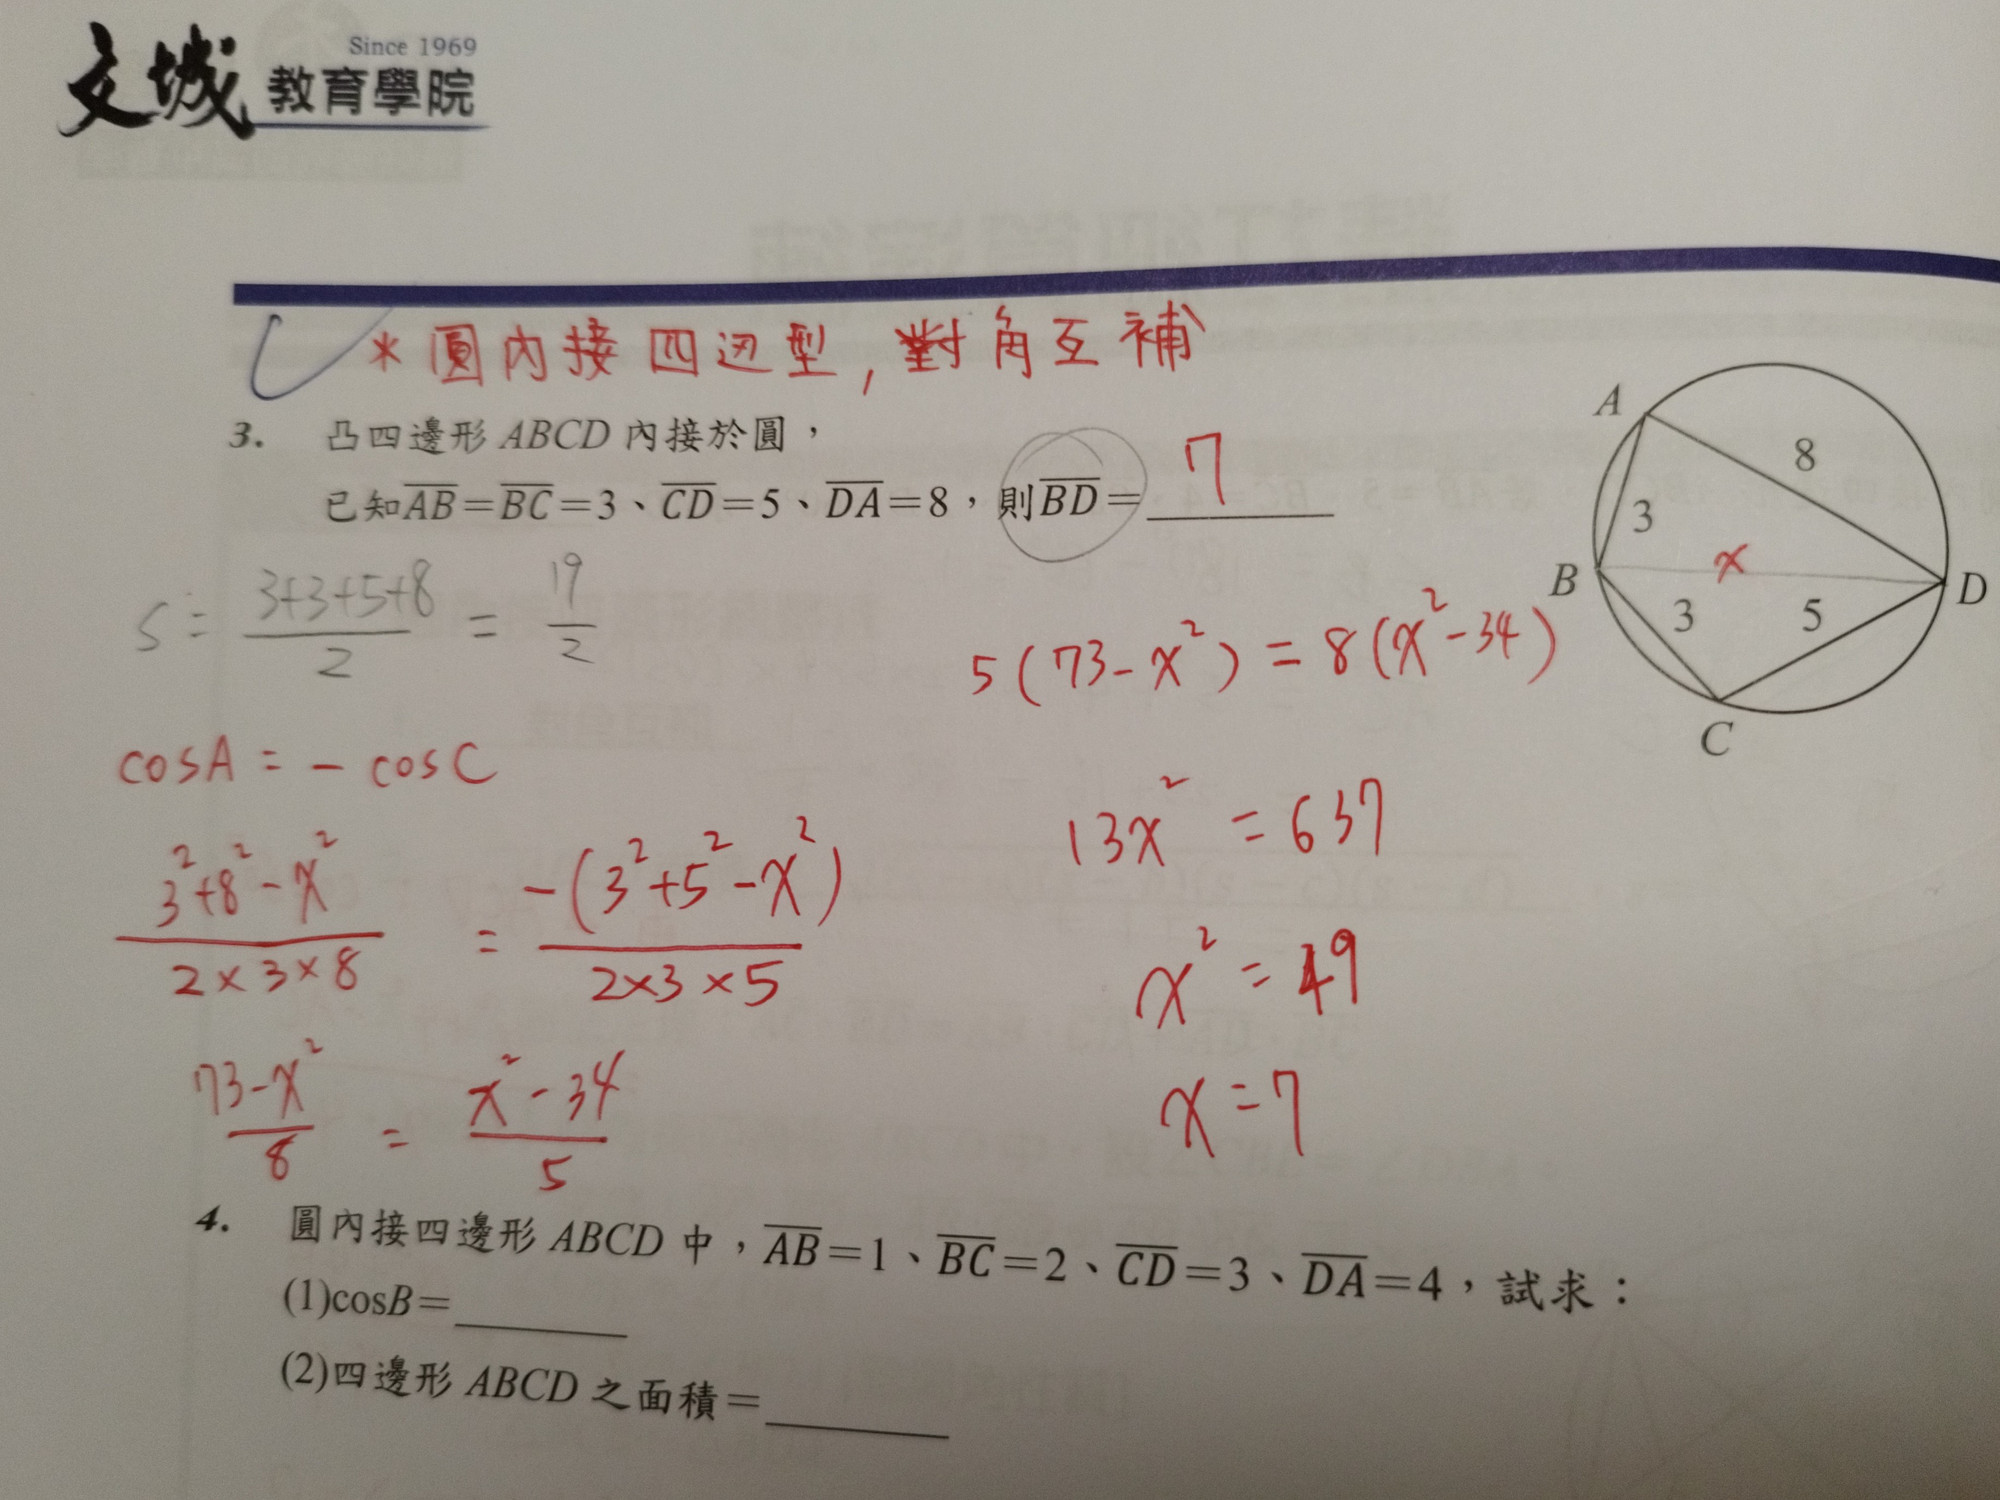 Since 1969
文城 教育學院
*圓內接四边型,對角互補
3. 凸四邊形ABCD內接於圓，
已知AB=BC=3、CD=5、DA=8，則BD= 7
A
8
3
B
x
D
3
5
C
S = (3+3+5+8)/2 = 19/2
cosA = - cosC
(3²+8²-x²)/(2×3×8) = -(3²+5²-x²)/(2×3×5)
(73-x²)/8 = (x²-34)/5
5(73-x²) = 8(x²-34)
13x² = 637
x² = 49
x = 7
4. 圓內接四邊形ABCD中，AB=1、BC=2、CD=3、DA=4，試求：
(1)cosB=
(2)四邊形ABCD之面積=